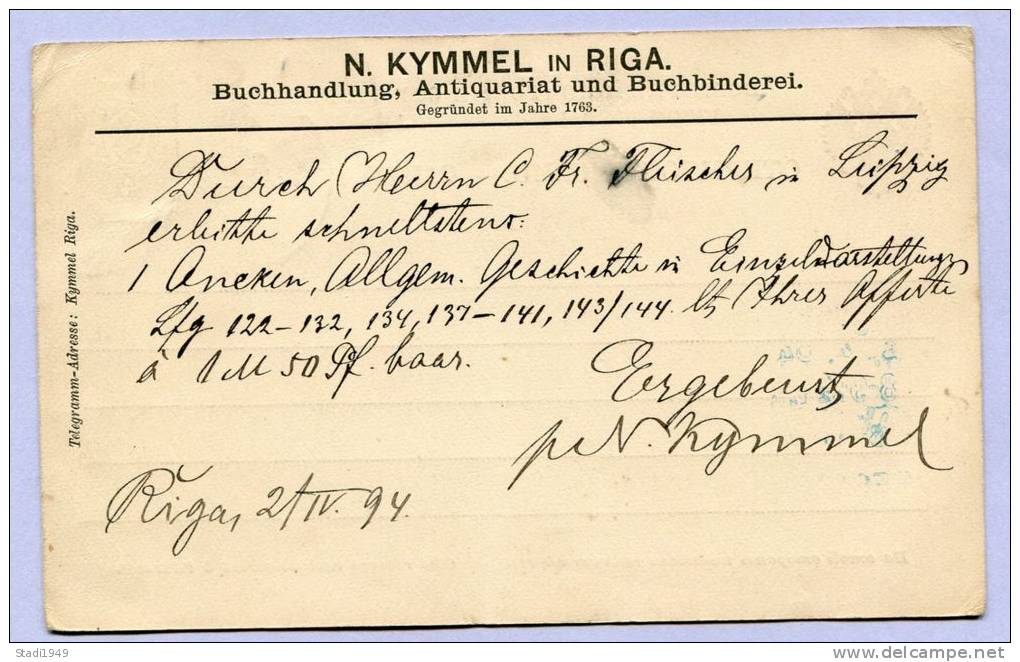 N. KYMMEL IN RIGA.
Buchhandlung, Antiquariat und Buchbinderei.
Gegründet im Jahre 1763.
Telegramm-Adresse: Kymmel Riga.
Durch Herrn C. Fr. Fleischer in Leipzig
erbitte schnellstens:
1 Oncken, Allgem. Geschichte in Einzeldarstellungen
Lfg 122-132, 134, 137-141, 143/144. lt Ihrer Offerte
à 1 M 50 Pf. baar.
Ergebenst
N. Kymmel
Riga, 2/IV. 94.
Stadi1949
www.delcampe.net